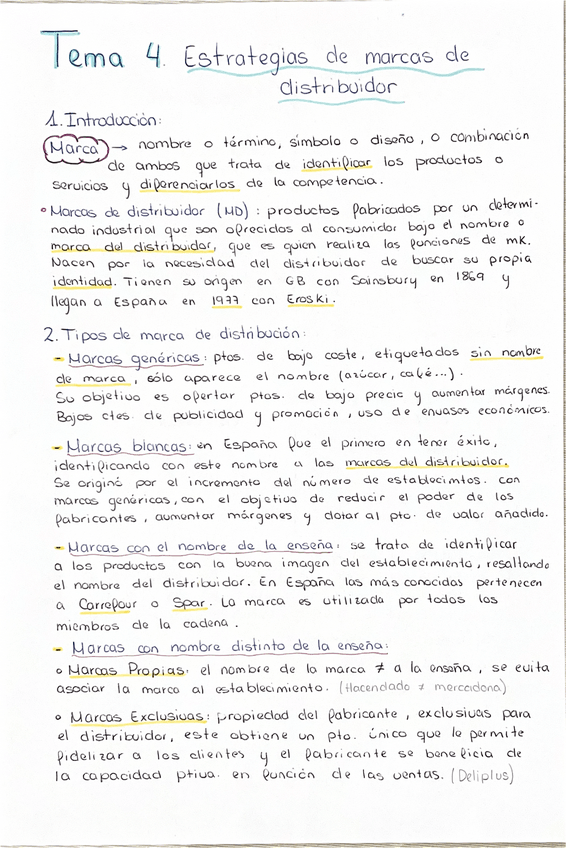 Tema 4. Estrategias de marcas de
distribuidor
1. Introducción:
Marca → nombre o término, símbolo o diseño, o combinación
de ambos que trata de identificar los productos o
servicios y diferenciarlos de la competencia.
• Marcas de distribuidor (MD): productos fabricados por un determi-
nado industrial que son ofrecidos al consumidor bajo el nombre o
marca del distribuidor, que es quien realiza las funciones de mk.
Nacen por la necesidad del distribuidor de buscar su propia
identidad. Tienen su origen en GB con Sainsbury en 1869 y
llegan a España en 1977 con Eroski.
2. Tipos de marca de distribución:
- Marcas genéricas: ptos. de bajo coste, etiquetados sin nombre
de marca, sólo aparece el nombre (azúcar, café...).
Su objetivo es ofertar ptos. de bajo precio y aumentar márgenes.
Bajos ctes. de publicidad y promoción, uso de envases económicos.
- Marcas blancas: en España fue el primero en tener éxito,
identificando con este nombre a las marcas del distribuidor.
Se originó por el incremento del número de establecimtos. con
marcas genéricas, con el objetivo de reducir el poder de los
fabricantes, aumentar márgenes y dotar al pto. de valor añadido.
- Marcas con el nombre de la enseña: se trata de identificar
a los productos con la buena imagen del establecimiento, resaltando
el nombre del distribuidor. En España las más conocidas pertenecen
a Carrefour o Spar. La marca es utilizada por todos los
miembros de la cadena.
- Marcas con nombre distinto de la enseña:
o Marcas Propias: el nombre de la marca ≠ a la enseña, se evita
asociar la marca al establecimiento. (Hacendado ≠ mercadona)
o Marcas Exclusivas: propiedad del fabricante, exclusivas para
el distribuidor, este obtiene un pto. único que le permite
fidelizar a los clientes y el fabricante se beneficia de
la capacidad ptiva. en función de las ventas. (Deliplus)